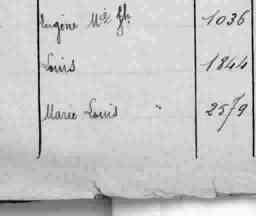 Eugène Mie fh 1036
Louis 1844
Marie Louis " 2579